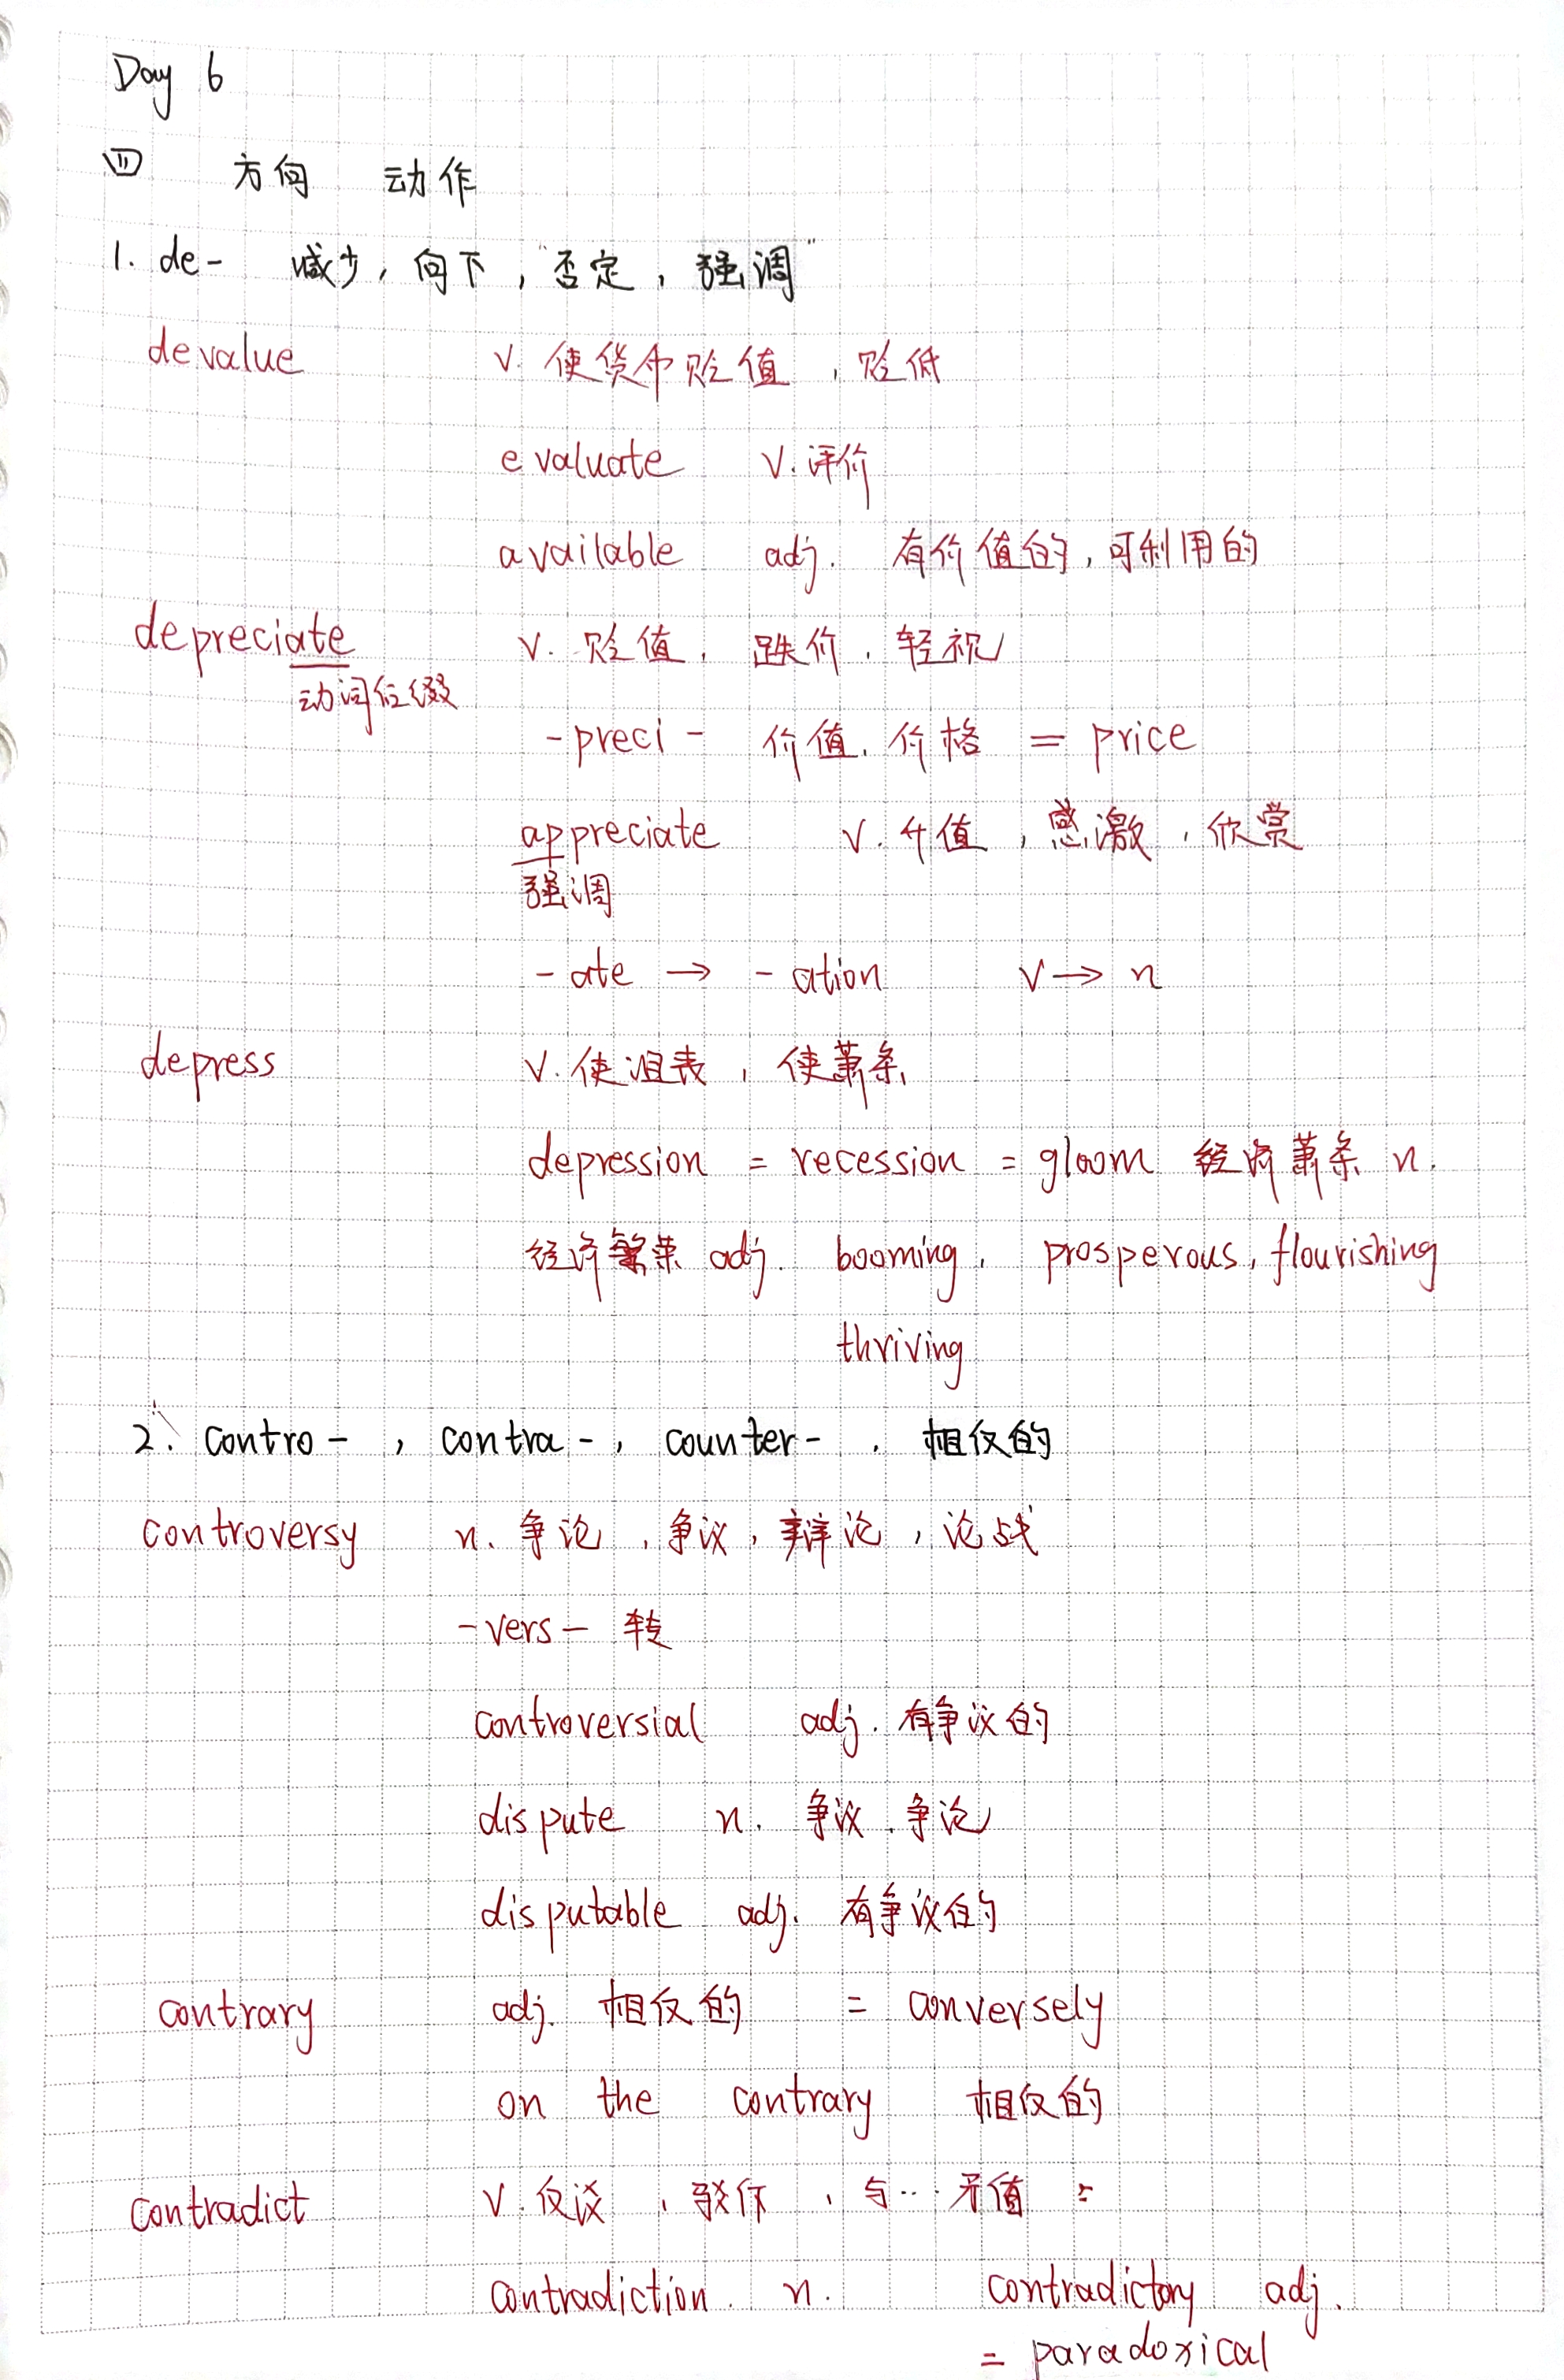 Day 6
四 方向 动作
1. de- 减少, 向下, "否定, 强调"
devalue v. 使货币贬值, 贬低
evaluate v. 评价
available adj. 有价值的, 可利用的
depreciate v. 贬值, 跌价, 轻视
动词后缀
-preci- 价值, 价格 = price
appreciate v. 升值, 感激, 欣赏
强调
-ate → -ation v → n
depress v. 使沮丧, 使萧条
depression = recession = gloom 经济萧条 n.
经济繁荣 adj. booming, prosperous, flourishing
thriving
2. contro-, contra-, counter-, 相反的
controversy n. 争论, 争议, 辩论, 论战
-vers- 转
controversial adj. 有争议的
dispute n. 争议, 争论
disputable adj. 有争议的
contrary adj. 相反的 = conversely
on the contrary 相反的
contradict v. 反设, 驳斥, 与… 矛盾 =
contradiction n. contradictory adj.
= paradoxical